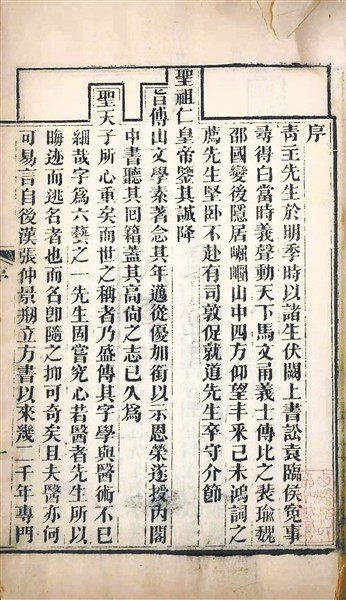 序
青主先生於明季時以諸生伏闕上書訟袁臨侯寃事
尋得白當時義聲動天下馬文甬義士傳比之裴瑜魏
邵國變後隱居崛山中四方仰望丰采己未鴻詞之
薦先生堅卧不赴有司敦促就道先生卒守介節
聖祖仁皇帝鑒其誠降
旨傅山文學素著念其年邁從優加銜以示恩榮遂授内閣
中書聽其回籍蓋其高尙之志已久爲
聖天子所心重矣而世之稱者乃盛傳其字學與醫術不已
細哉字爲六藝之一先生固嘗究心若醫者先生所以
晦迹而逃名者也而名卽隨之抑可奇矣且夫醫亦何
可易言自後漢張仲景剏立方書以來幾二千年專門
序